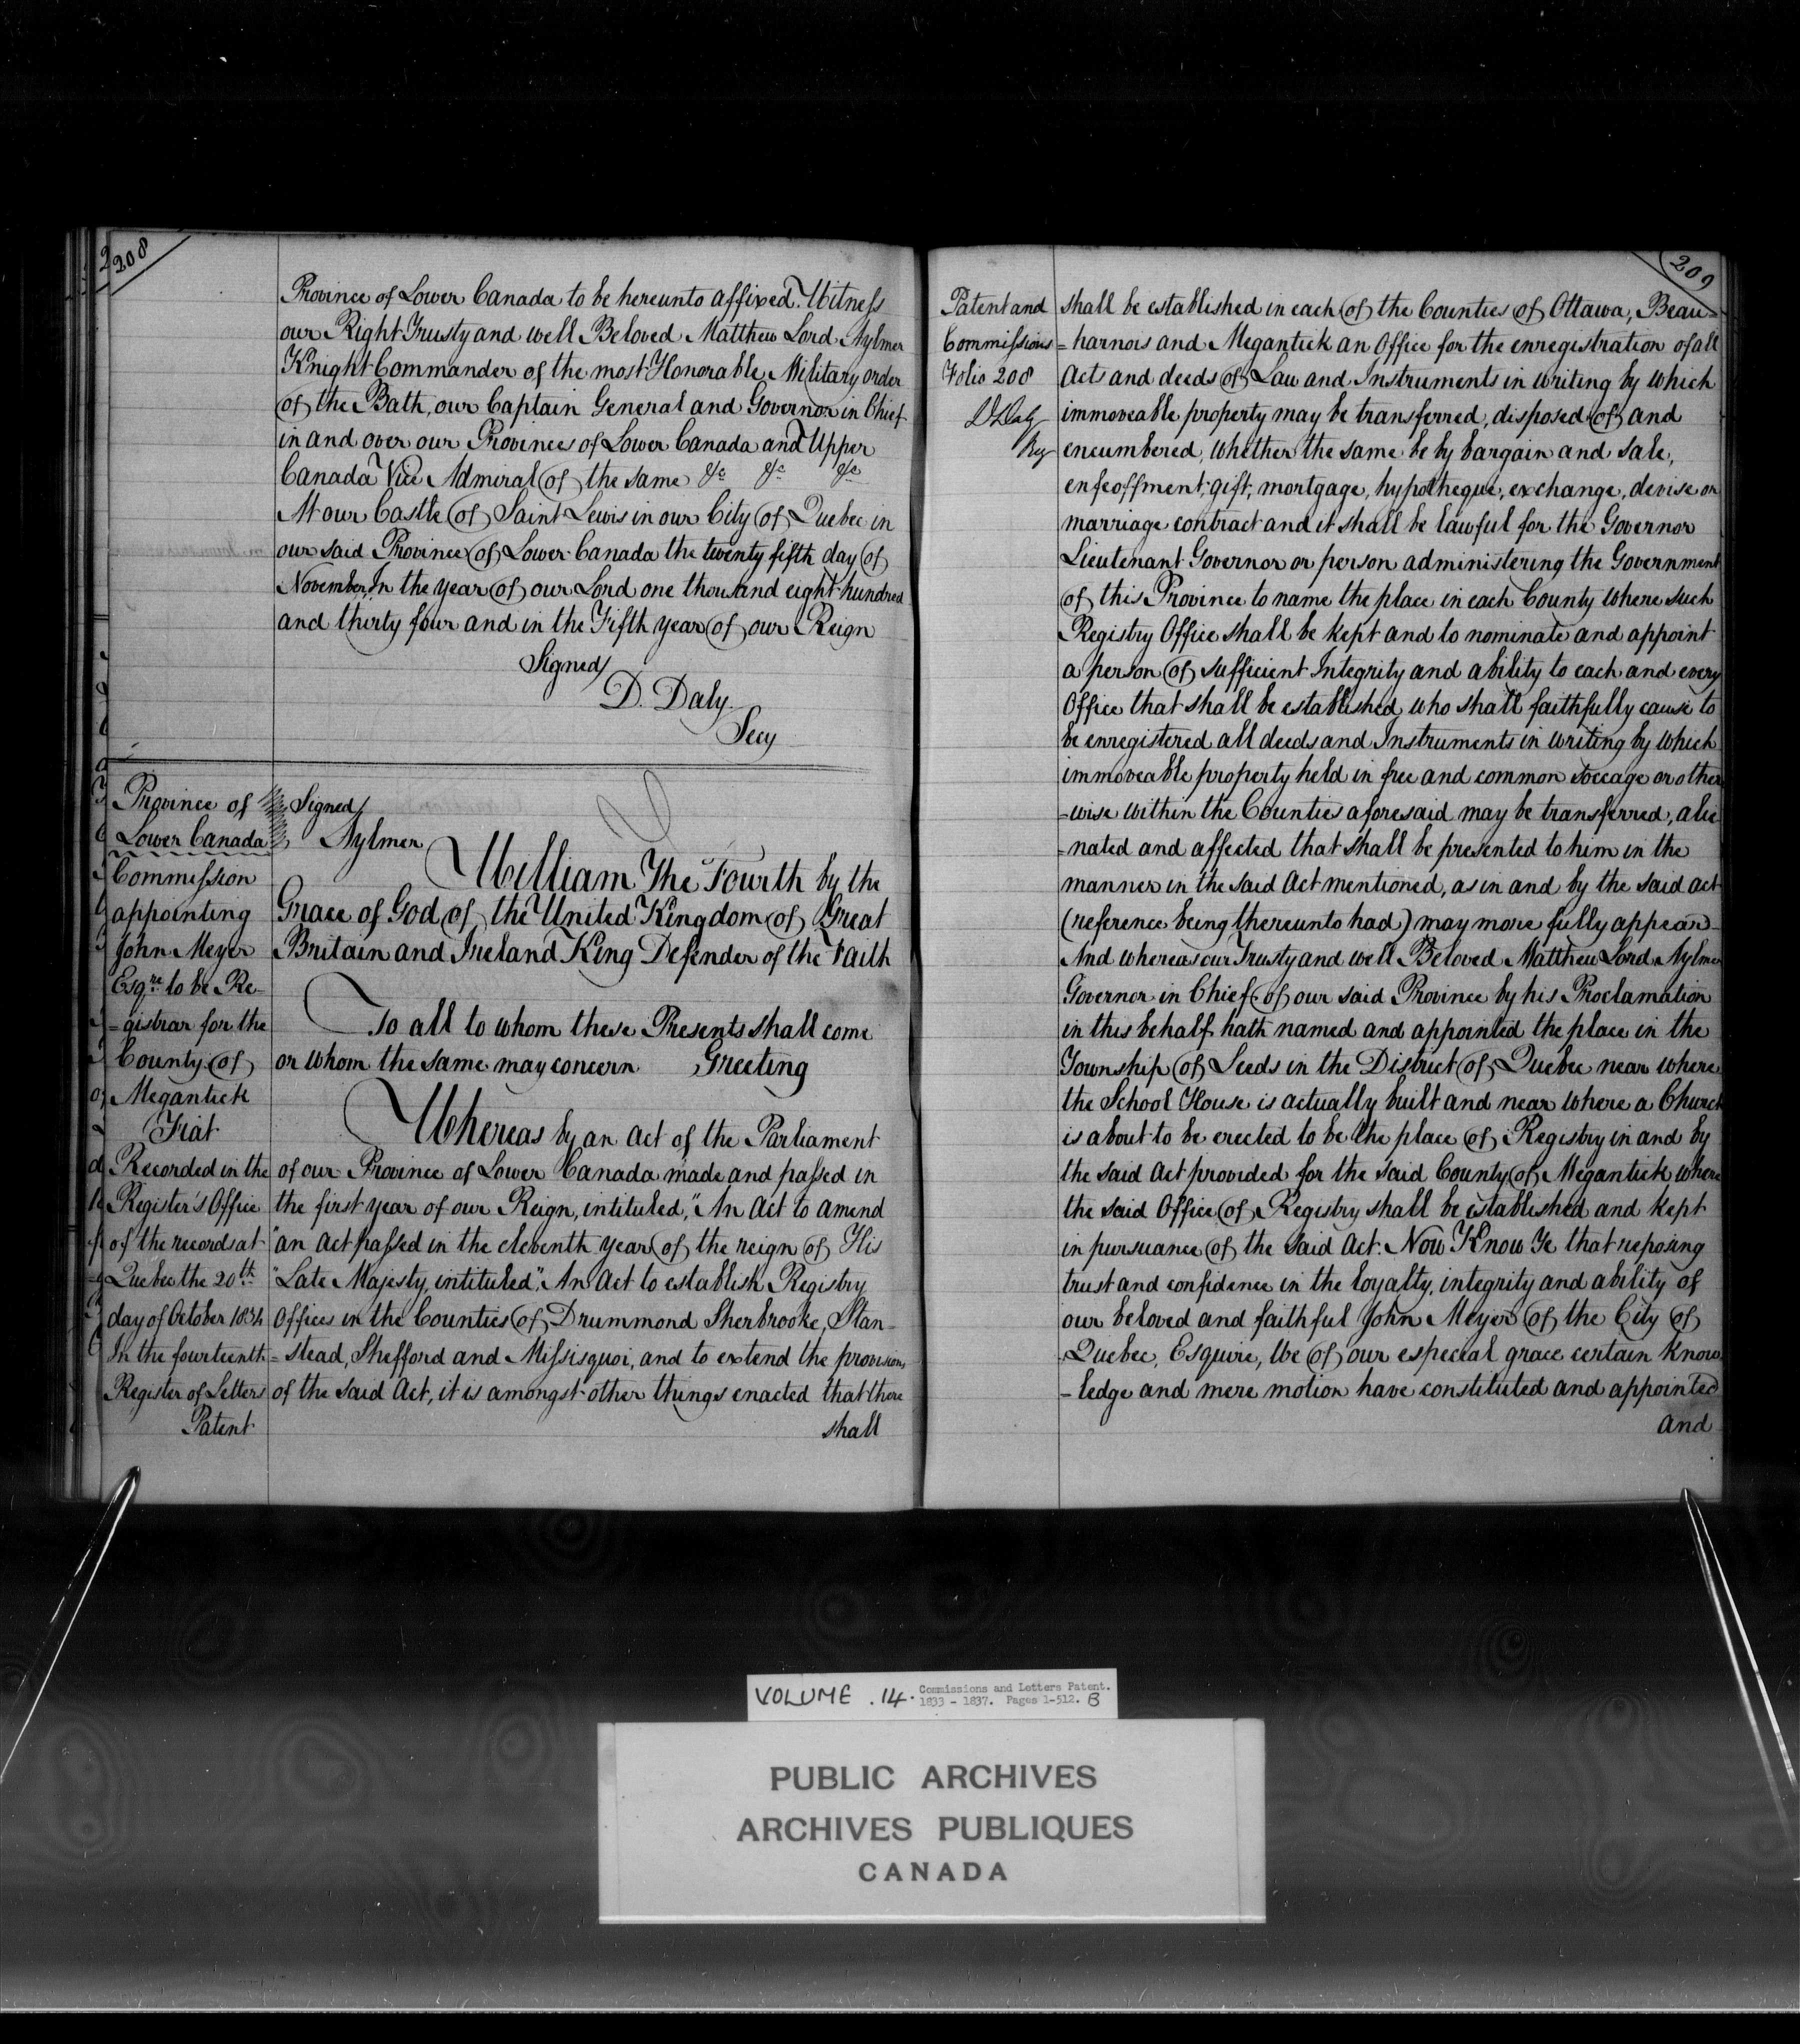 208
Province of Lower Canada to be hereunto affixed. Witness
our Right Trusty and well Beloved Matthew Lord Aylmer
Knight Commander of the most Honorable Military order
of the Bath, our Captain General and Governor in Chief
in and over our Provinces of Lower Canada and Upper
Canada Vice Admiral of the same &c &c &c
At our Castle of Saint Lewis in our City of Quebec in
our said Province of Lower Canada the twenty fifth day of
November, In the year of our Lord one thousand eight hundred
and thirty four and in the Fifth year of our Reign
Signed/
D. Daly
Secy
Province of
Lower Canada
Commission
appointing
John Meyer
Esqre to be Re-
=gistrar for the
County of
Megantick
Fiat
Recorded in the
Register's Office
of the records at
Quebec the 20th
day of October 1834
In the fourteenth
Register of Letters
Patent
Signed/
Aylmer
William The Fourth by the
Grace of God of the United Kingdom of Great
Britain and Ireland King Defender of the Faith
To all to whom these Presents shall come
or whom the same may concern Greeting
Whereas by an act of the Parliament
of our Province of Lower Canada made and passed in
the first year of our Reign, intituled, "An Act to amend
"an act passed in the eleventh year of the reign of His
"Late Majesty, intituled," An Act to establish Registry
Offices in the Counties of Drummond Sherbrooke, Stan-
=stead, Shefford and Missisquoi, and to extend the provisions
of the said Act, it is amongst other things enacted that there
shall
209
Patent and
Commissions
Folio 208
D Daly
Reg
shall be established in each of the Counties of Ottawa, Beau=
=harnois and Megantick an Office for the enregistration of all
Acts and deeds of Law and Instruments in writing by which
immoveable property may be transferred, disposed of and
encumbered, whether the same be by bargain and sale,
enfeoffment, gift, mortgage, hypotheque, exchange, devise or
marriage contract and it shall be lawful for the Governor
Lieutenant Governor or person administering the Government
of this Province to name the place in each County where such
Registry Office shall be kept and to nominate and appoint
a person of sufficient Integrity and ability to each and every
Office that shall be established, who shall faithfully cause to
be enregistered all deeds and Instruments in writing by which
immoveable property held in free and common soccage or other
=wise within the Counties aforesaid may be transferred, alie
=nated and affected that shall be presented to him in the
manner in the said Act mentioned, as in and by the said act
(reference being thereunto had) may more fully appear-
And whereas our Trusty and well Beloved Matthew Lord Aylmer
Governor in Chief of our said Province by his Proclamation
in this behalf hath named and appointed the place in the
Township of Leeds in the District of Quebec near where
the School House is actually built and near where a Church
is about to be erected to be the place of Registry in and by
the said Act provided for the said County of Megantick where
the said Office of Registry shall be established and kept
in pursuance of the said Act. Now Know Ye that reposing
trust and confidence in the loyalty, integrity and ability of
our beloved and faithful John Meyer of the City of
Quebec, Esquire, We of our especial grace certain know
=ledge and mere motion have constituted and appointed
and
VOLUME . 14. Commissions and Letters Patent.
1833 - 1837. Pages 1-512. B
PUBLIC ARCHIVES
ARCHIVES PUBLIQUES
CANADA